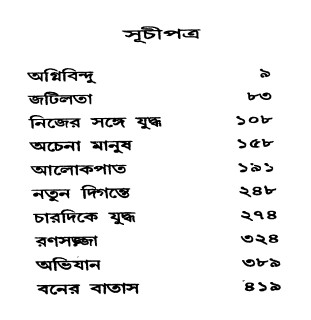 সূচীপত্র
অগ্নিবিন্দু ৯
জটিলতা ৮৩
নিজের সঙ্গে যুদ্ধ ১০৮
অচেনা মানুষ ১৫৮
আলোকপাত ১৯১
নতুন দিগন্তে ২৪৮
চারদিকে যুদ্ধ ২৭৪
রণসজ্জা ৩২৪
অভিযান ৩৮৯
বনের বাতাস ৪১৯